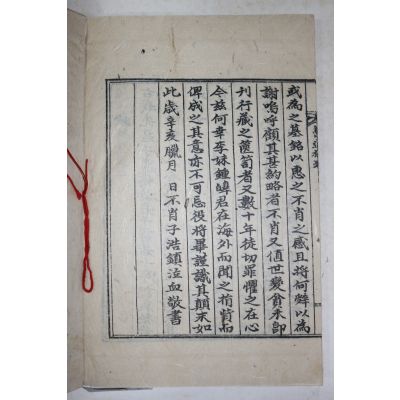 或為之墓銘以惠之不肖之感且將何辭以為
謝嗚呼顧其甚約略者不肖又值世變貧未即
刊行藏之篋笥者又數十年徒切罪懼之在心
今茲何幸李妹鍾嶂君在海外而聞之捐貲而
俾成之其意亦不可忘役將畢謹識其顛末如
此歲辛亥臘月　日不肖子浩鎮泣血敬書